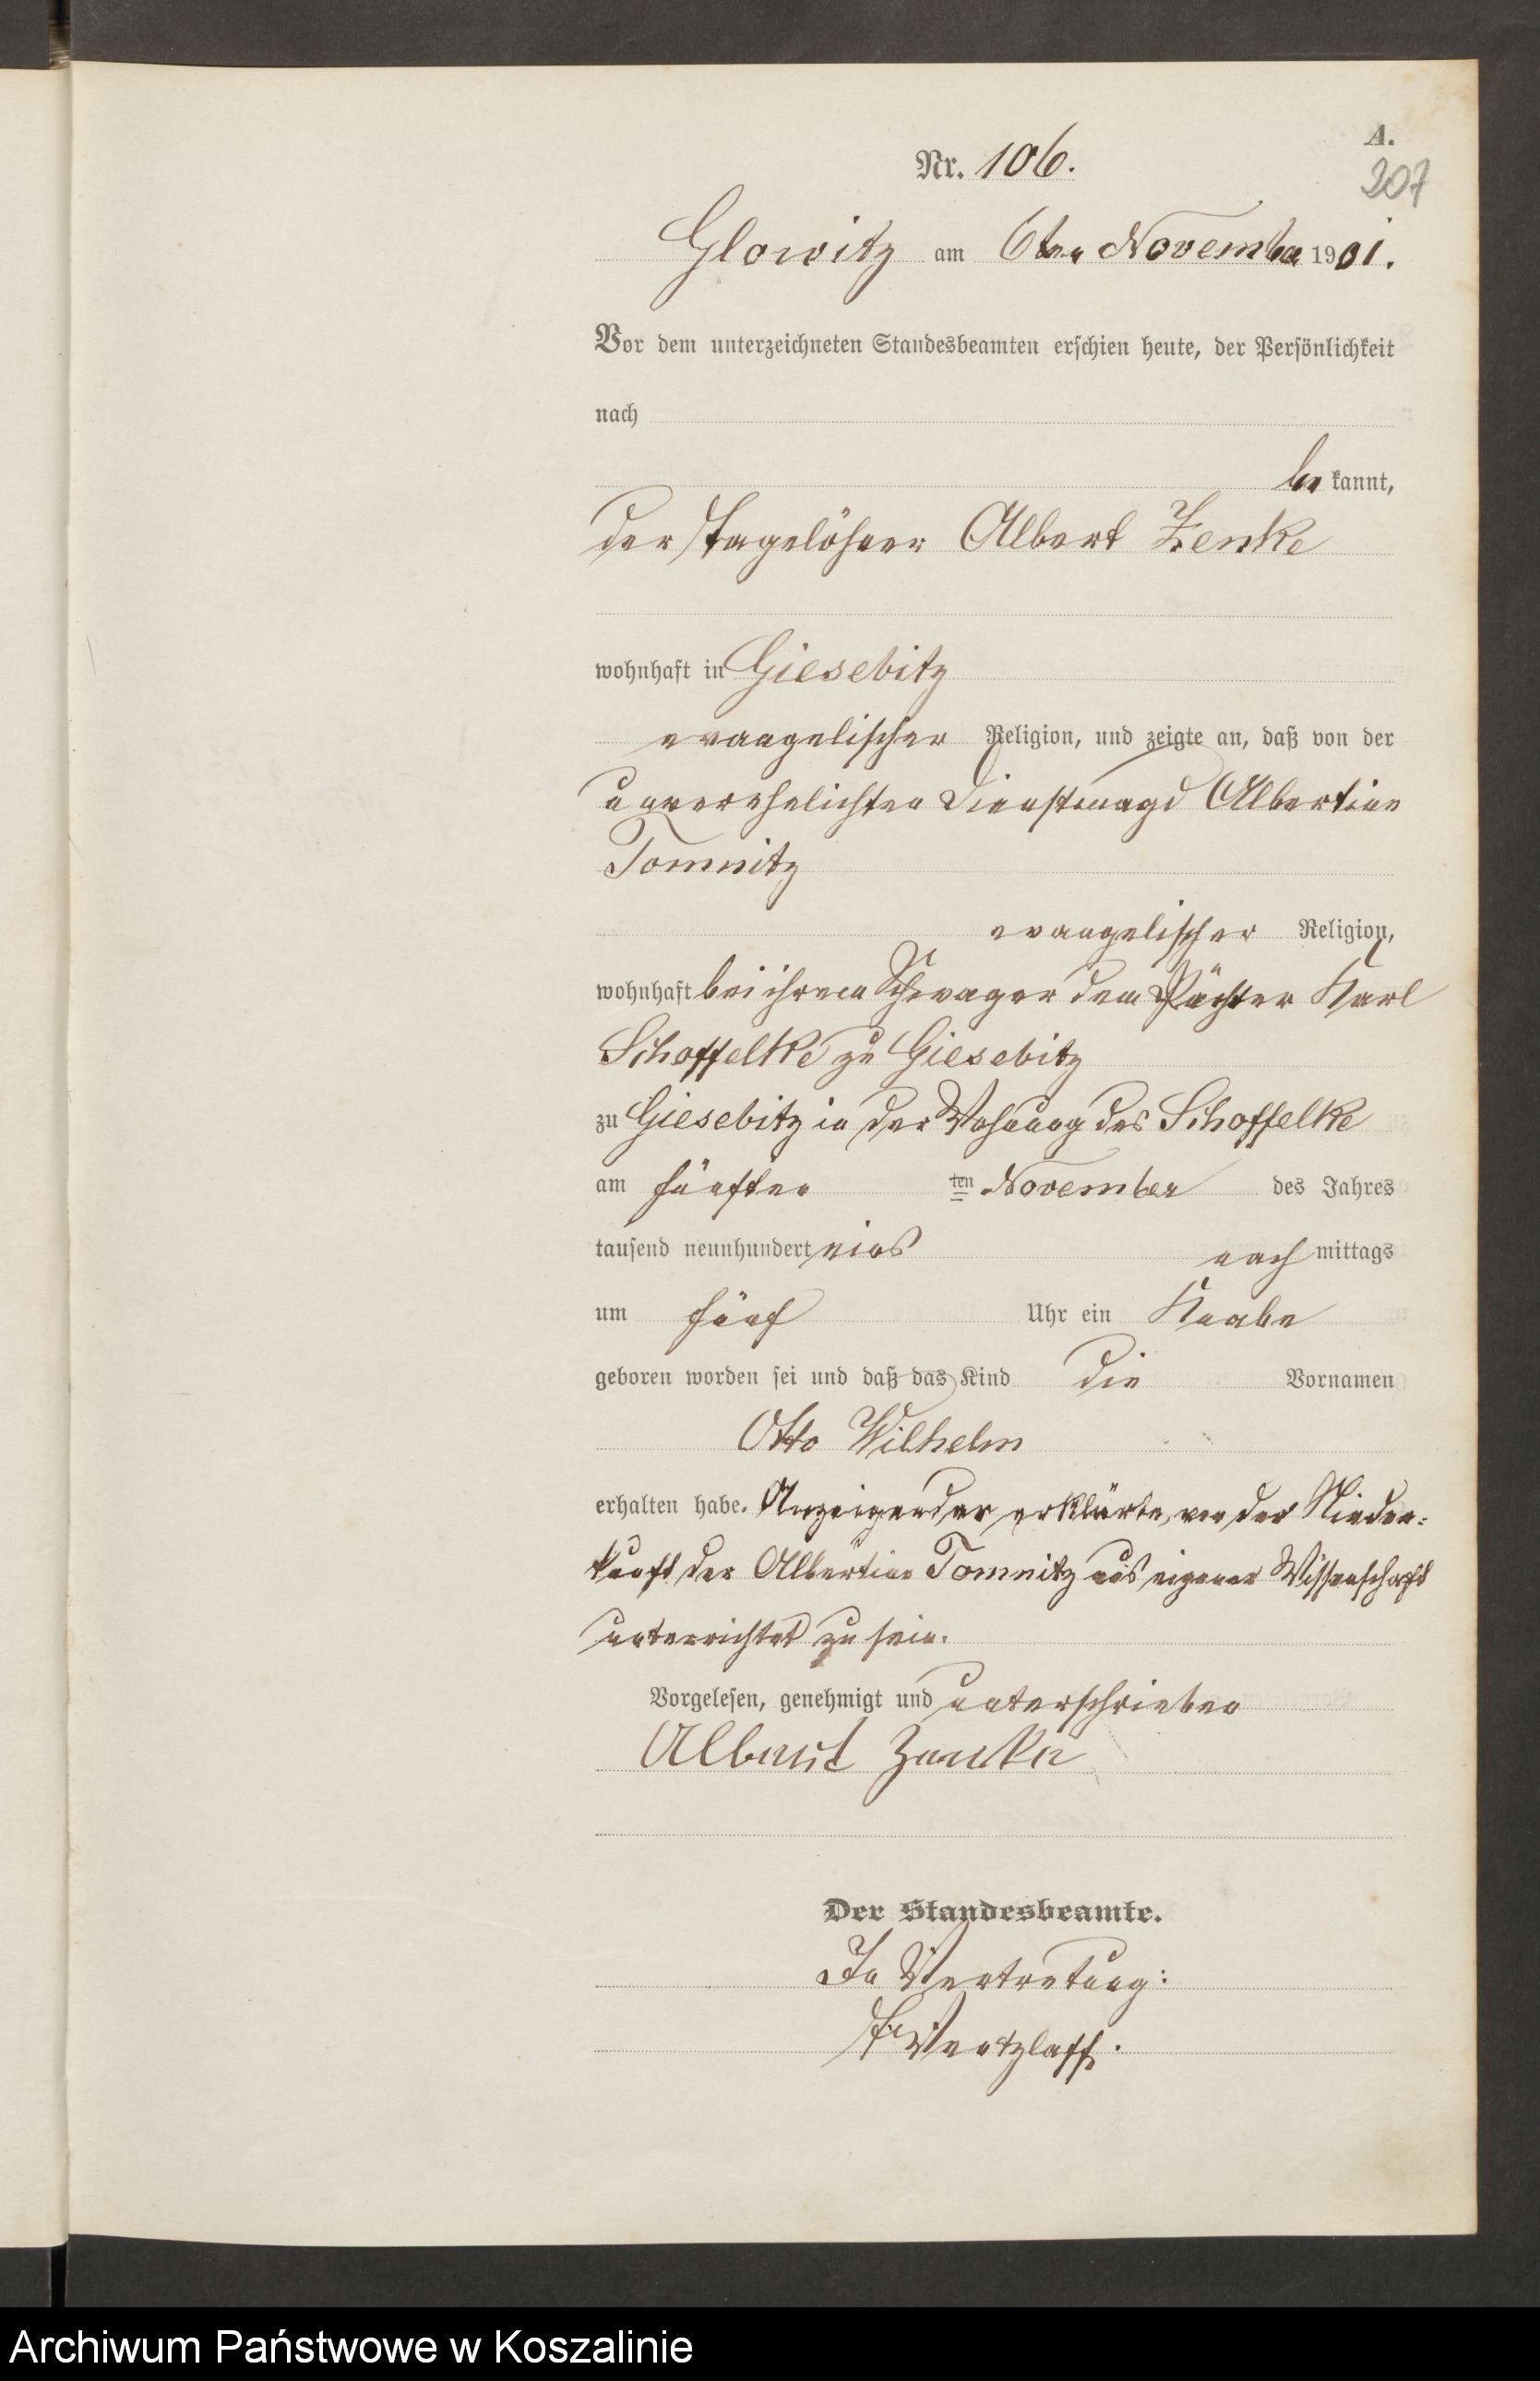 A.
Nr. 106.
207
Glowitz am 6ten November 1901.
Vor dem unterzeichneten Standesbeamten erschien heute, der Persönlichkeit
nach
be kannt,
der Tagelöhner Albert Zenke
wohnhaft in Giesebitz
evangelischer Religion, und zeigte an, daß von der
unverehelichten Dienstmagd Albertine
Tomnitz
evangelischer Religion,
wohnhaft bei ihrem Schwager dem Pächter Karl
Schoffelke zu Giesebitz
zu Giesebitz in der Wohnung des Schoffelke
am fünften ten November des Jahres
tausend neunhundert eins nach mittags
um fünf Uhr ein Knabe
geboren worden sei und daß das Kind die Vornamen
Otto Wilhelm
erhalten habe. Anzeigender erklärte, von der Nieder-
kunft der Albertine Tomnitz aus eigener Wissenschaft
unterrichtet zu sein.
Vorgelesen, genehmigt und unterschrieben
Albert Zenke
Der Standesbeamte.
In Vertretung:
Vertzlaff.
Archiwum Państwowe w Koszalinie